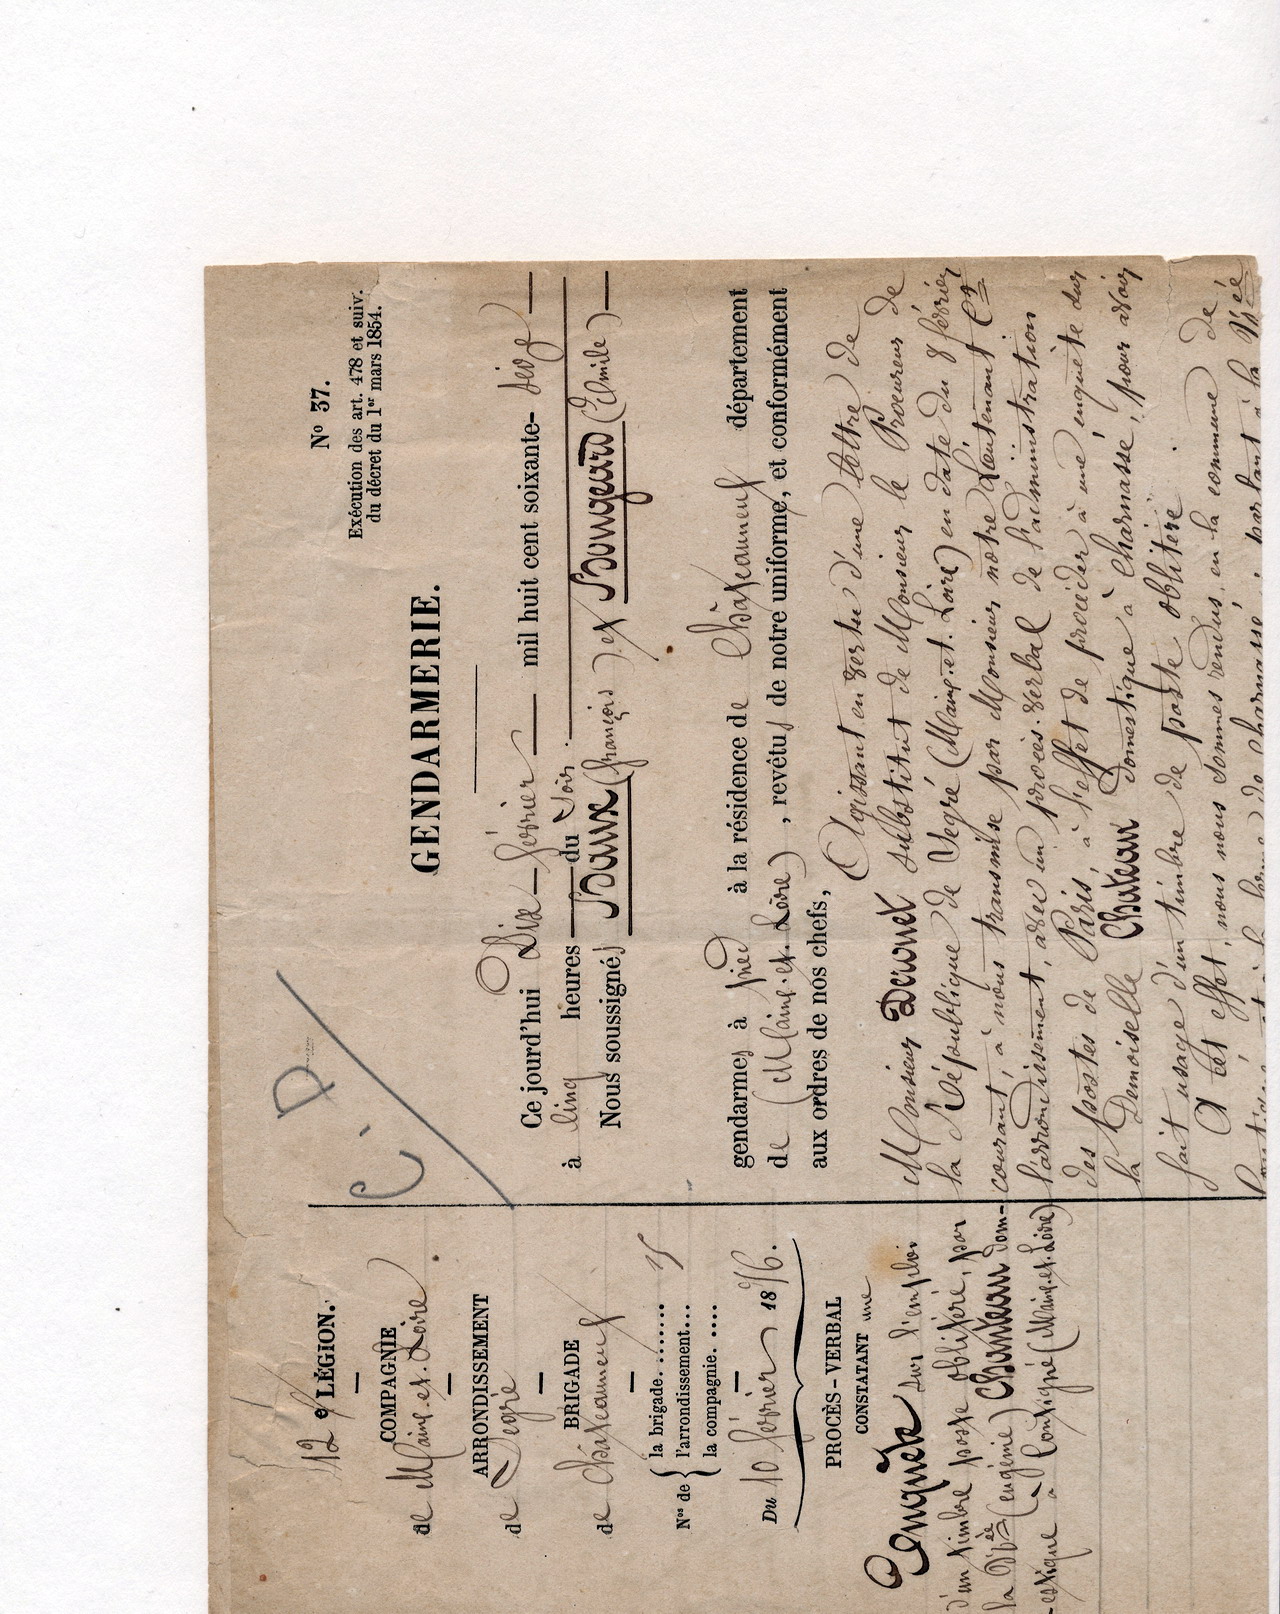 12e LÉGION.
COMPAGNIE
de Maine-et-Loire
ARRONDISSEMENT
de Segré
BRIGADE
de Châteauneuf
Nos de { la brigade........ 15
l'arrondissement...
la compagnie. ....
Du 10 février 1876.
PROCÈS-VERBAL
CONSTATANT une
Enquête sur l'emploi
d'un timbre poste oblitéré, par
la Dlle (eugénie) Chateau dom-
-estique à Contigné (Maine-et-Loire)
C. P
No 37.
Exécution des art. 478 et suiv.
du décret du 1er mars 1854.
GENDARMERIE.
Ce jourd'hui Dix février mil huit cent soixante-seize
à cinq heures du Soir.
Nous soussignés (françois) et Bougeard (Emile)
gendarmes à pied à la résidence de Châteauneuf département
de (Maine-et-Loire), revêtus de notre uniforme, et conformément
aux ordres de nos chefs, Agissant en vertu d'une lettre de
Monsieur substitut de Monsieur le Procureur de
la République de Segré (Maine-et-Loire) en date du 8 février
courant, à nous transmise par Monsieur notre Lieutenant Ct
l'arrondissement, avec un procès-verbal de l'administration
des postes de Paris, à l'effet de procéder à une enquête sur
la Demoiselle Chateau domestique à Charnassé, pour avoir
fait usage d'un timbre de poste oblitéré.
A cet effet, nous nous sommes rendus, en la commune de
à la ferme de Charnassé, parlant à la Dlle